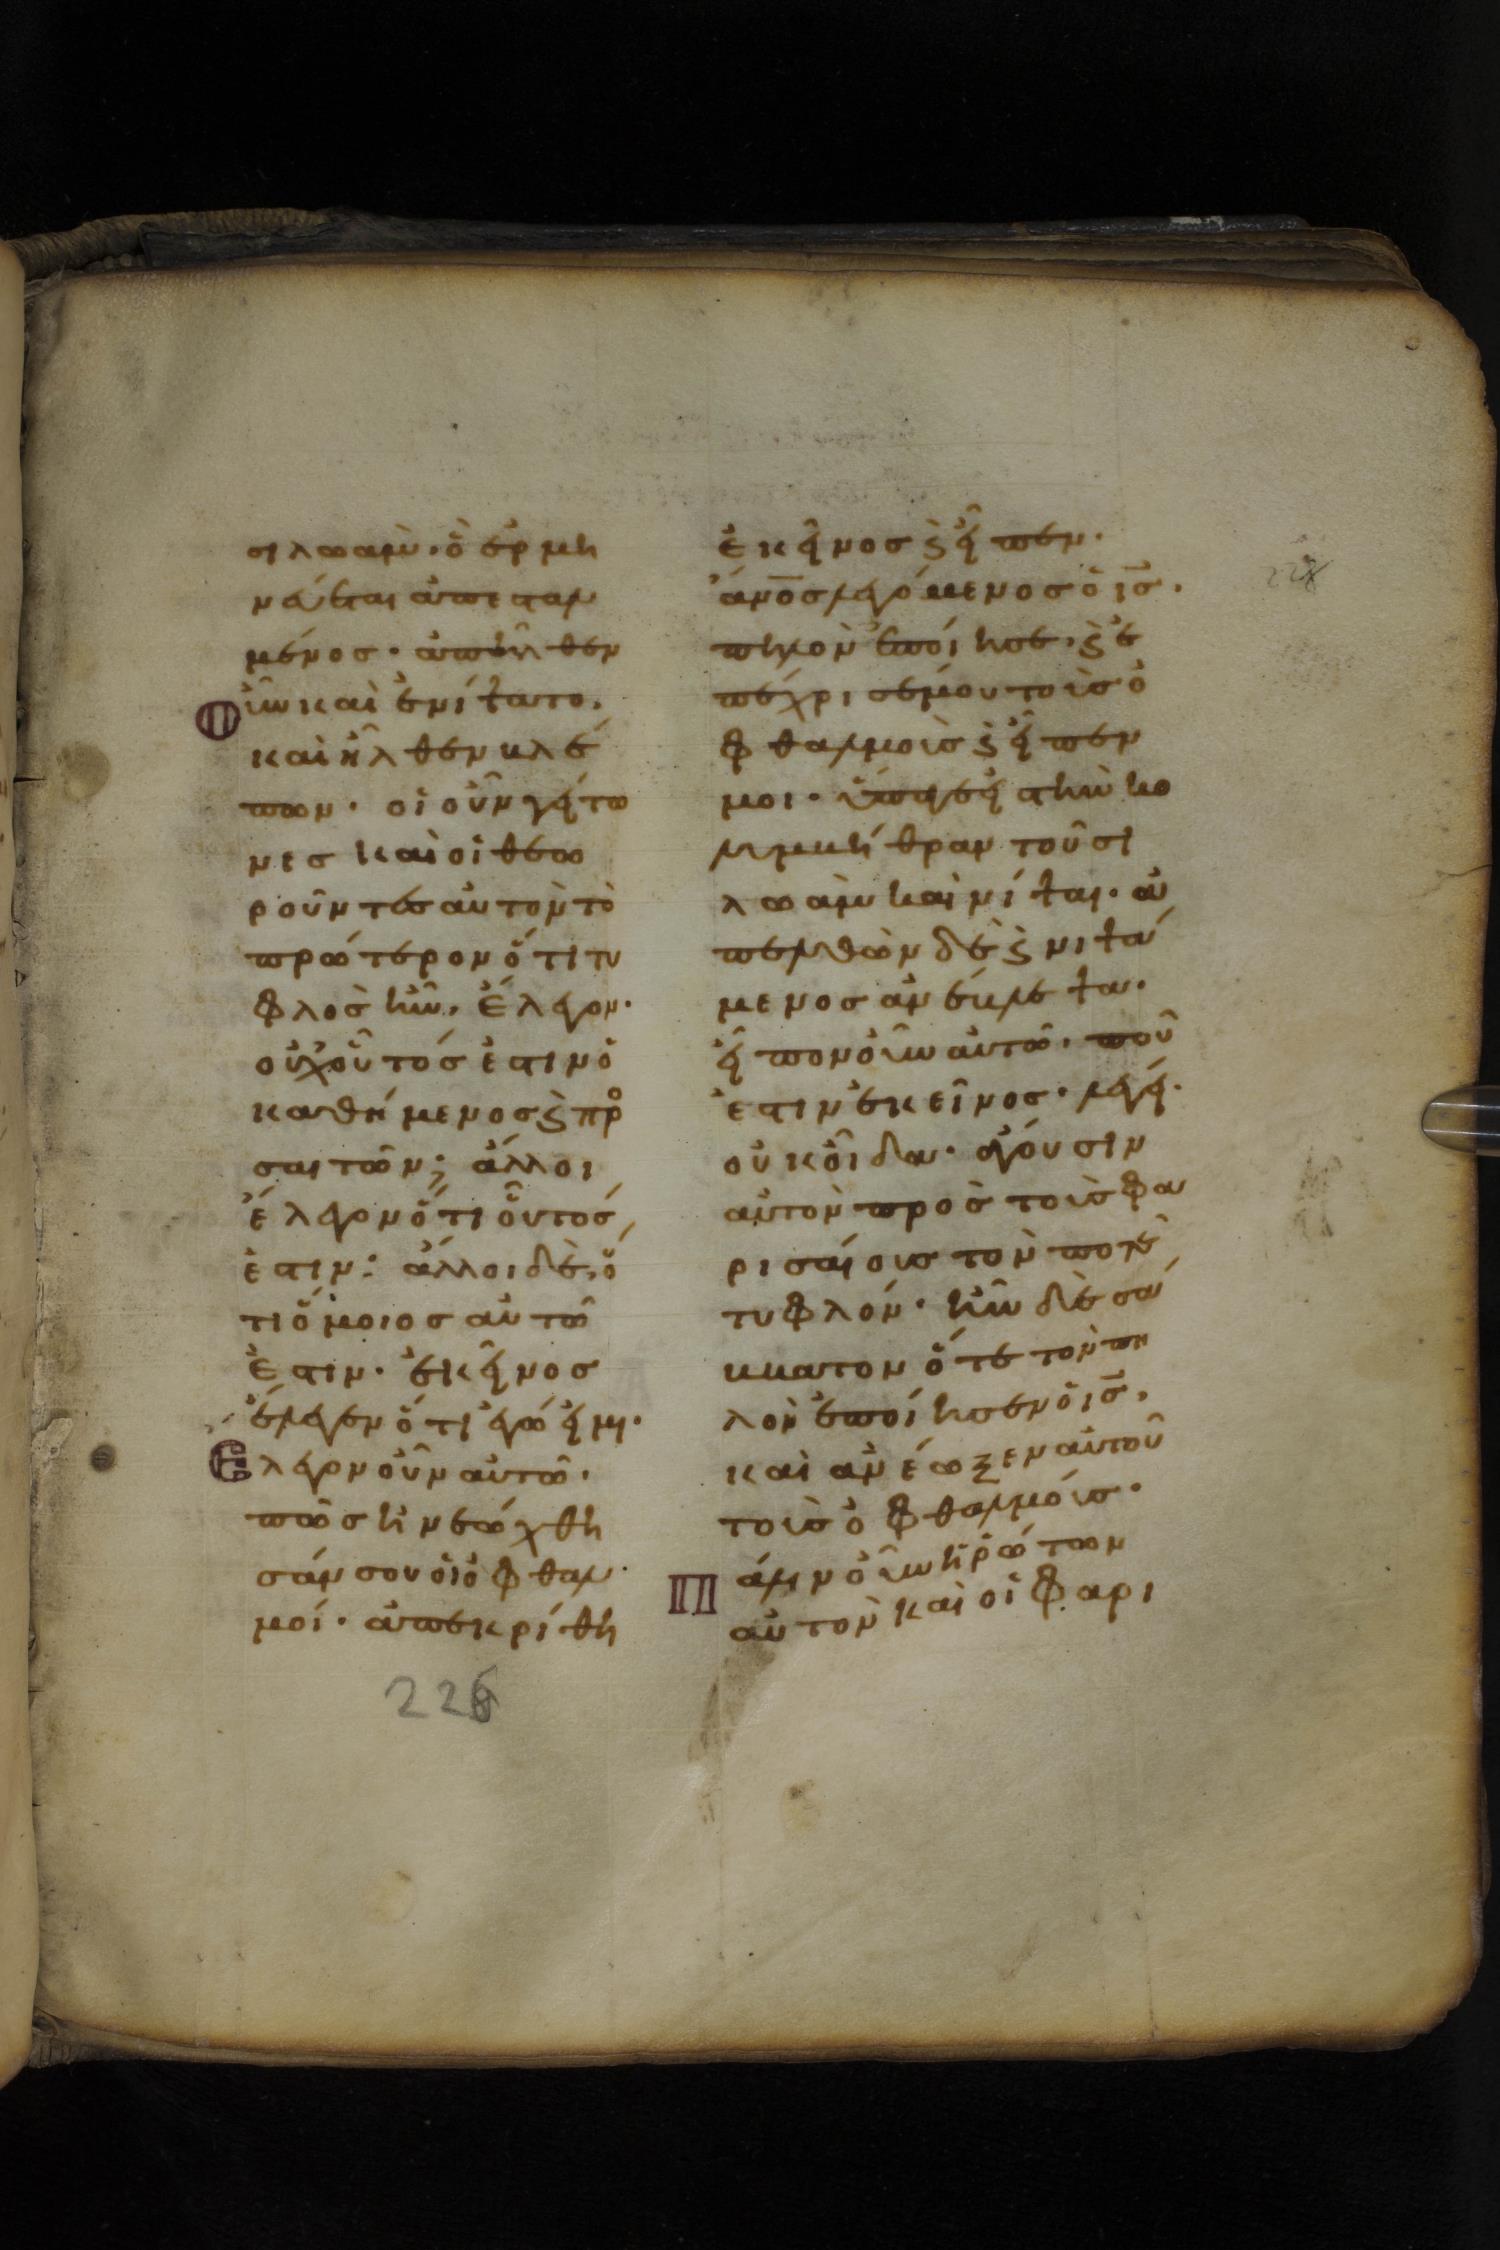 σιλωαμ· ὃ ἑρμη
νεύεται ἀπεσταλ
μένος· ἀπῆλθεν
οὖν καὶ ἐνίψατο.
καὶ ἦλθεν βλέ
πων· οἱ οὖν γείτο
νες καὶ οἱ θεω
ροῦντες αὐτὸν τὸ
πρότερον ὅτι τυ
φλὸς ἦν, ἔλεγον·
οὐχ οὗτός ἐστιν ὁ
καθήμενος ϗ προ
σαιτῶν; ἄλλοι
ἔλεγον ὅτι οὗτός
ἐστιν: ἄλλοι δὲ, ὅ
τι ὅμοιος αὐτῶ
ἐστιν· ἐκεῖνος
ἔλεγεν ὅτι ἐγώ εἰμι·
Ελεγον οὖν αὐτῶ·
πῶς ἠνεώχθη
σάν σου οἱ ὀφθαλ
μοί· ἀπεκρίθη
ἐκεῖνος ϗ εἶπεν·
ἄνο̅ς λεγόμενος ὁ ις̅.
πηλὸν ἐποίησε, ϗ ἐ
πέχρισέ μου τοὺς ὀ
φθαλμοὺς ϗ εἶπέν
μοι· ὕπαγε εἰς τὴν κο
λυμβήθραν τοῦ σι
λωὰμ καὶ νίψαι· ἀ
πελθὼν δὲ ϗ νιψά
μενος ἀνέβλεψα·
εἶπον οὖν αὐτῶ· ποῦ
ἐστιν ἐκεῖνος· λέγει·
οὐκ οἶδα· ἄγουσιν
αὐτὸν πρὸς τοὺς φα
ρισαίους τὸν ποτὲ
τυφλόν· ἦν δὲ σά
ββατον ὅτε τὸν πη
λὸν ἐποίησεν ὁ ις̅,
καὶ ἀνέωξεν αὐτοῦ
τοὺς ὀφθαλμούς·
Πάλιν οὖν ἠρώτων
αὐτὸν καὶ οἱ φαρι
226